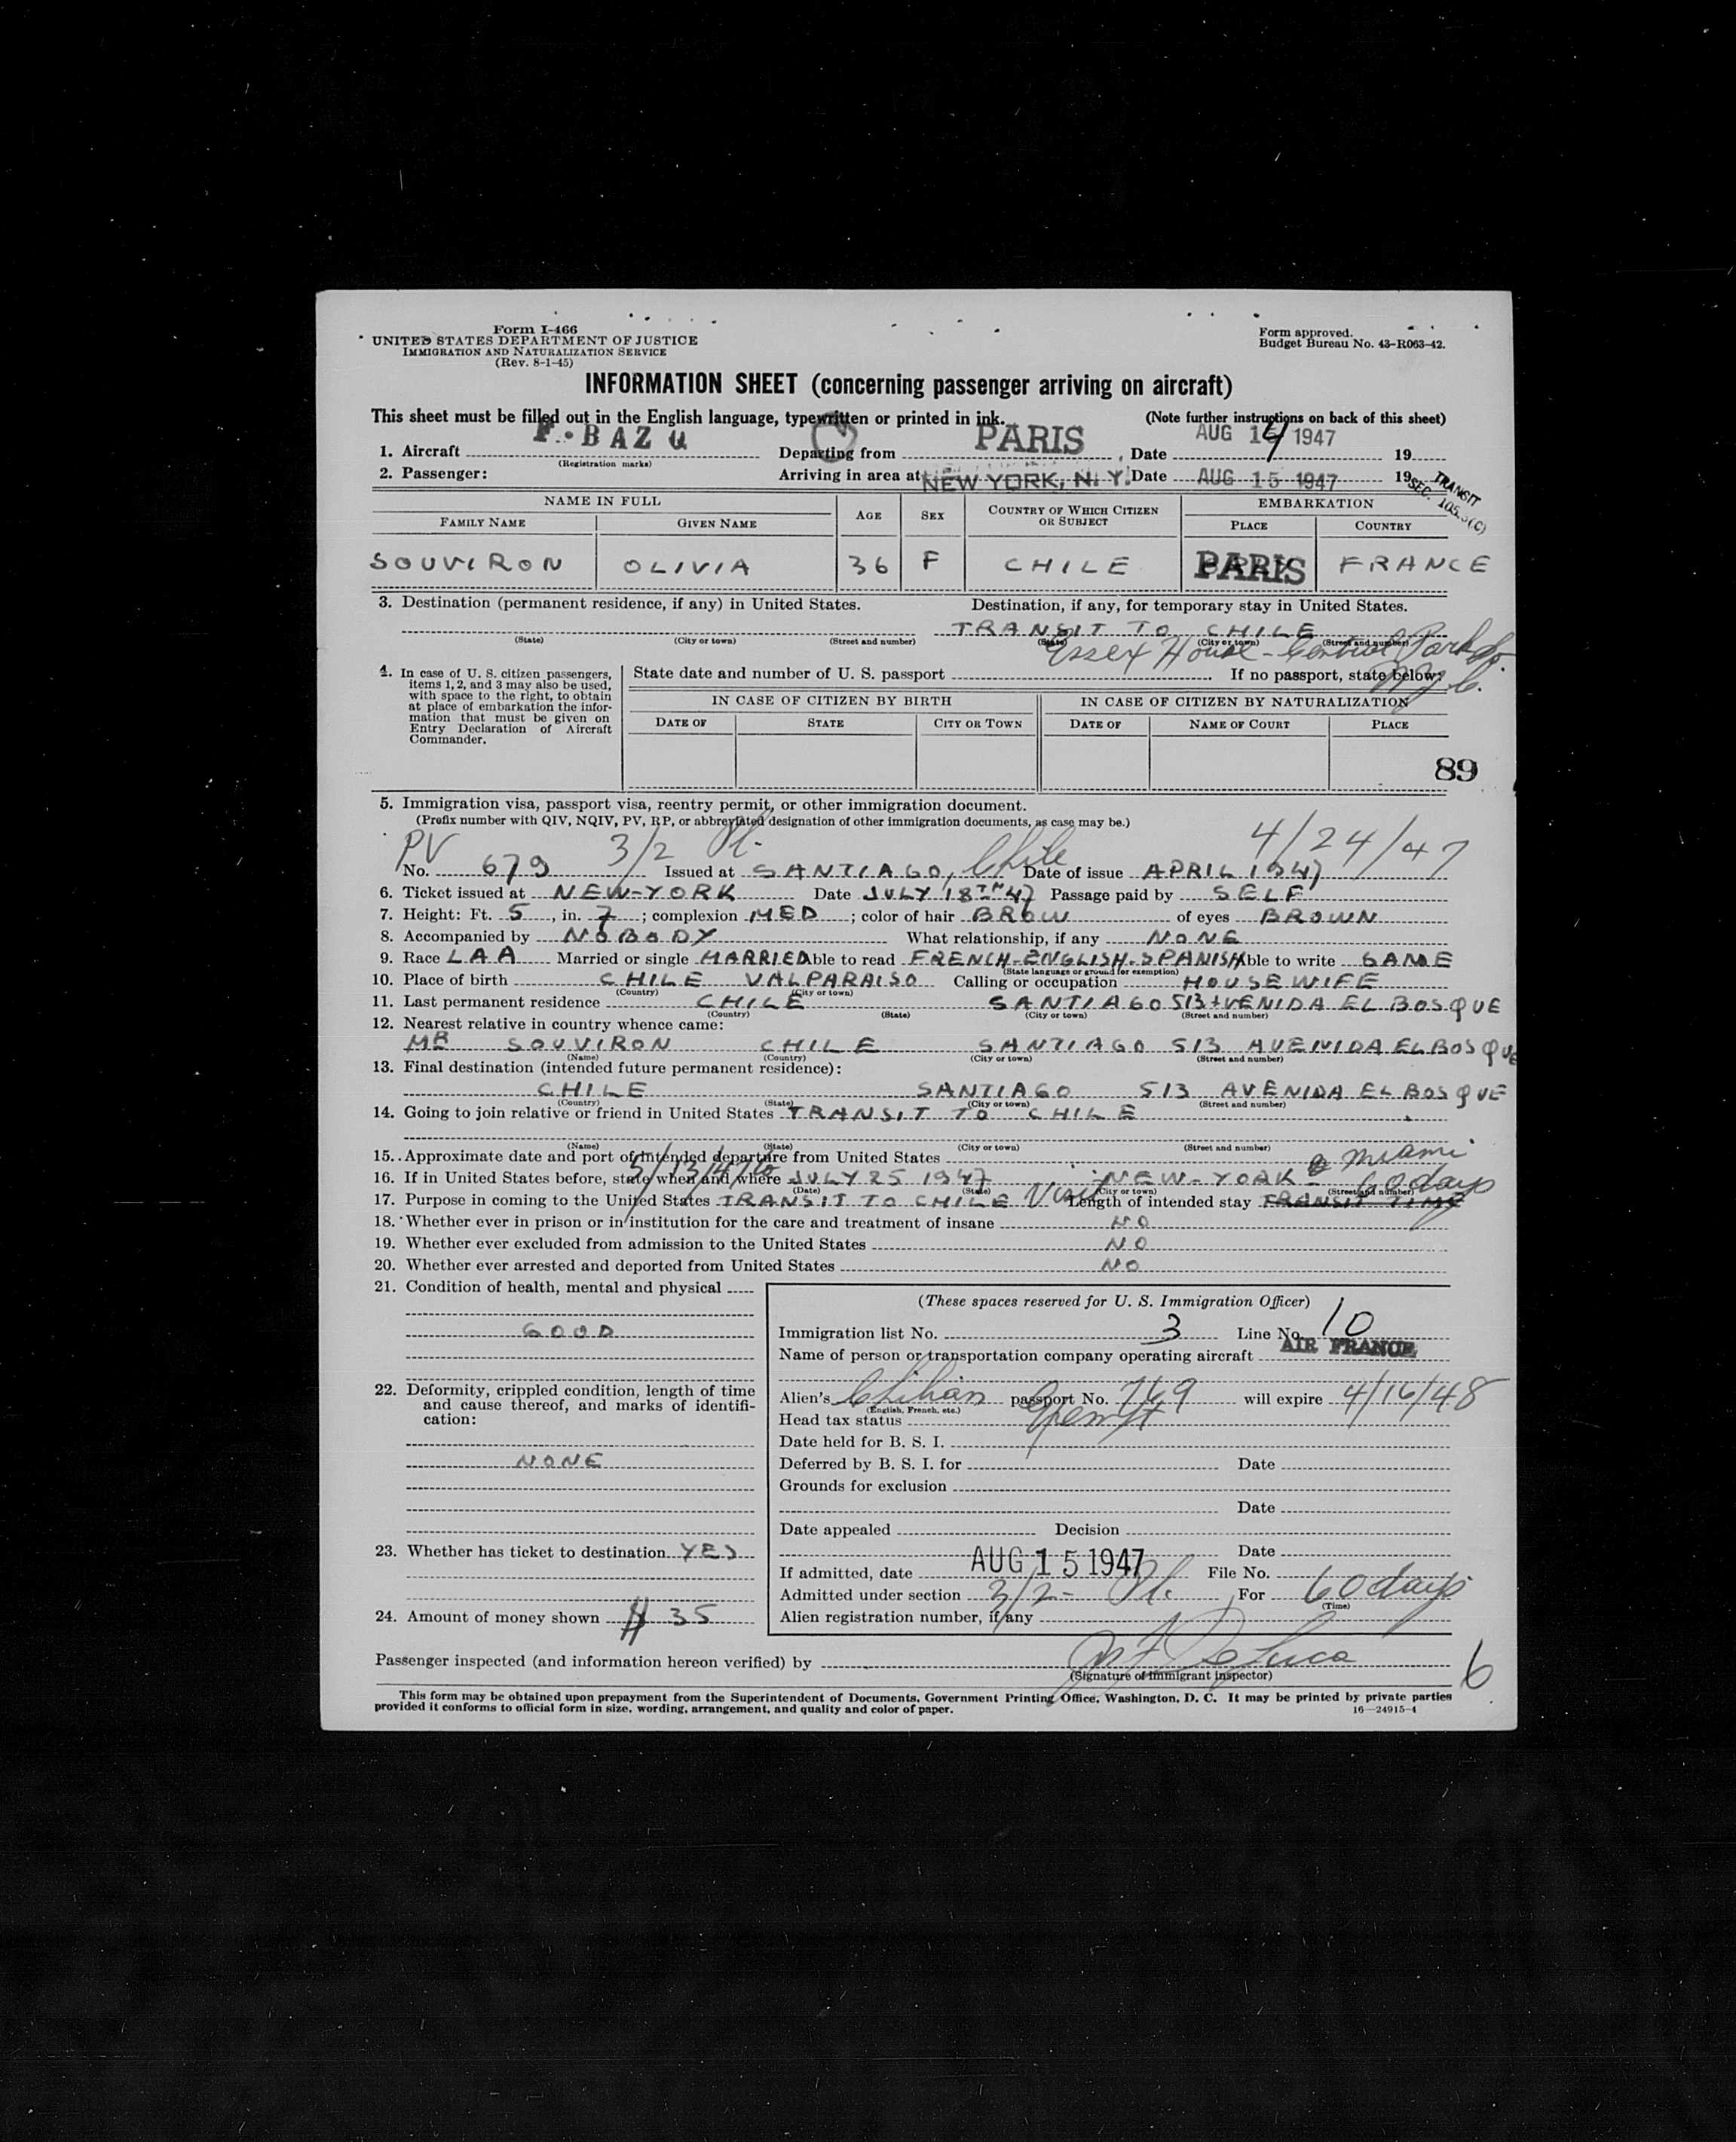 Form I-466
UNITED STATES DEPARTMENT OF JUSTICE
IMMIGRATION AND NATURALIZATION SERVICE
(Rev. 8-1-45)
Form approved.
Budget Bureau No. 43-R063-42.
INFORMATION SHEET (concerning passenger arriving on aircraft)
This sheet must be filled out in the English language, typewritten or printed in ink. (Note further instructions on back of this sheet)
1. Aircraft F.BAZQ Departing from PARIS, Date AUG 14 1947 19
(Registration marks)
2. Passenger: Arriving in area at NEW YORK, N. Y. Date AUG 15 1947 19
TRANSIT
SEC. 105.3(C)
NAME IN FULL AGE SEX COUNTRY OF WHICH CITIZEN OR SUBJECT EMBARKATION
FAMILY NAME GIVEN NAME PLACE COUNTRY
SOUVIRON OLIVIA 36 F CHILE PARIS FRANCE
3. Destination (permanent residence, if any) in United States. Destination, if any, for temporary stay in United States.
TRANSIT TO CHILE
(State) (City or town) (Street and number) (State) (City or town) (Street and number)
Essex House - Central Park So.
N.Y.C.
4. In case of U. S. citizen passengers, items 1, 2, and 3 may also be used, with space to the right, to obtain at place of embarkation the information that must be given on Entry Declaration of Aircraft Commander.
State date and number of U. S. passport If no passport, state below:
IN CASE OF CITIZEN BY BIRTH IN CASE OF CITIZEN BY NATURALIZATION
DATE OF STATE CITY OR TOWN DATE OF NAME OF COURT PLACE
89
5. Immigration visa, passport visa, reentry permit, or other immigration document.
(Prefix number with QIV, NQIV, PV, RP, or abbreviated designation of other immigration documents, as case may be.)
PV 3/2 Pl. 4/24/47
No. 679 Issued at SANTIAGO, Chile Date of issue APRIL 1947
6. Ticket issued at NEW-YORK Date JULY 18TH 47 Passage paid by SELF
7. Height: Ft. 5, in. 7; complexion MED; color of hair BROW of eyes BROWN
8. Accompanied by NOBODY What relationship, if any NONE
9. Race LAA Married or single MARRIED Able to read FRENCH-ENGLISH-SPANISH Able to write SAME
(State language or ground for exemption)
10. Place of birth CHILE VALPARAISO Calling or occupation HOUSEWIFE
(Country) (City or town)
11. Last permanent residence CHILE SANTIAGO 513 AVENIDA EL BOSQUE
(Country) (State) (City or town) (Street and number)
12. Nearest relative in country whence came:
MR SOUVIRON CHILE SANTIAGO 513 AVENIDA EL BOSQUE
(Name) (Country) (City or town) (Street and number)
13. Final destination (intended future permanent residence):
CHILE SANTIAGO 513 AVENIDA EL BOSQUE
(Country) (State) (City or town) (Street and number)
14. Going to join relative or friend in United States TRANSIT TO CHILE
(Name) (State) (City or town) (Street and number)
15. Approximate date and port of intended departure from United States Miami
16. If in United States before, state when and where 5/13/47 to JULY 25 1947 NEW-YORK
(Date) (State) (City or town) (Street and number)
17. Purpose in coming to the United States TRANSIT TO CHILE Visit Length of intended stay TRANSIT TIME 60 days
18. Whether ever in prison or in institution for the care and treatment of insane NO
19. Whether ever excluded from admission to the United States NO
20. Whether ever arrested and deported from United States NO
21. Condition of health, mental and physical
GOOD
22. Deformity, crippled condition, length of time and cause thereof, and marks of identification:
NONE
23. Whether has ticket to destination YES
24. Amount of money shown $ 35
(These spaces reserved for U. S. Immigration Officer)
Immigration list No. 3 Line No. 10
Name of person or transportation company operating aircraft AIR FRANCE
Alien's Chilian passport No. 769 will expire 4/16/48
(English, French, etc.)
Head tax status Exempt
Date held for B. S. I.
Deferred by B. S. I. for Date
Grounds for exclusion
Date
Date appealed Decision
Date
If admitted, date AUG 15 1947 File No.
Admitted under section 3/2 - Pl. For 60 days
(Time)
Alien registration number, if any
Passenger inspected (and information hereon verified) by
(Signature of immigrant inspector)
6
This form may be obtained upon prepayment from the Superintendent of Documents, Government Printing Office, Washington, D. C. It may be printed by private parties
provided it conforms to official form in size, wording, arrangement, and quality and color of paper. 16—24915-4